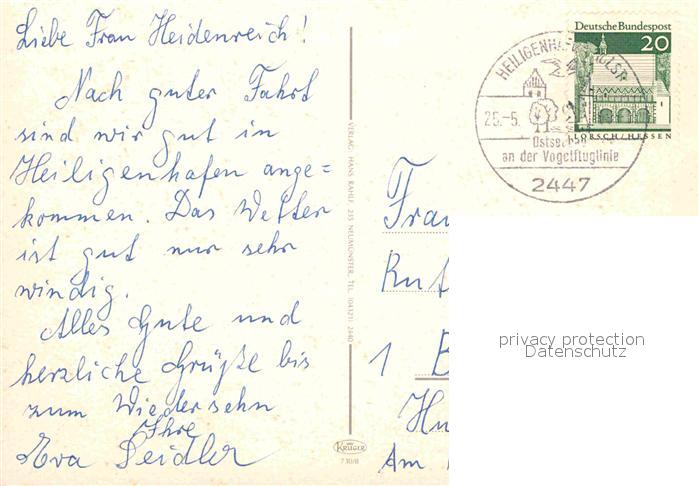 Liebe Frau Heidenreich!
Nach guter Fahrt
sind wir gut in
Heiligenhafen ange=
kommen. Das Wetter
ist gut nur sehr
windig.
Alles Gute und
herzliche Grüße bis
zum Wiedersehn
Ihre
Eva Seidler
VERLAG HANS KAHLF 235 NEUMÜNSTER, TEL. (04321) 2440
KRÜGER
Deutsche Bundespost
20
LORSCH/HESSEN
HEILIGENHAFEN
25.-5.
an der Vogelfluglinie
2447
Frau
Rut
1 B
Am
privacy protection
Datenschutz